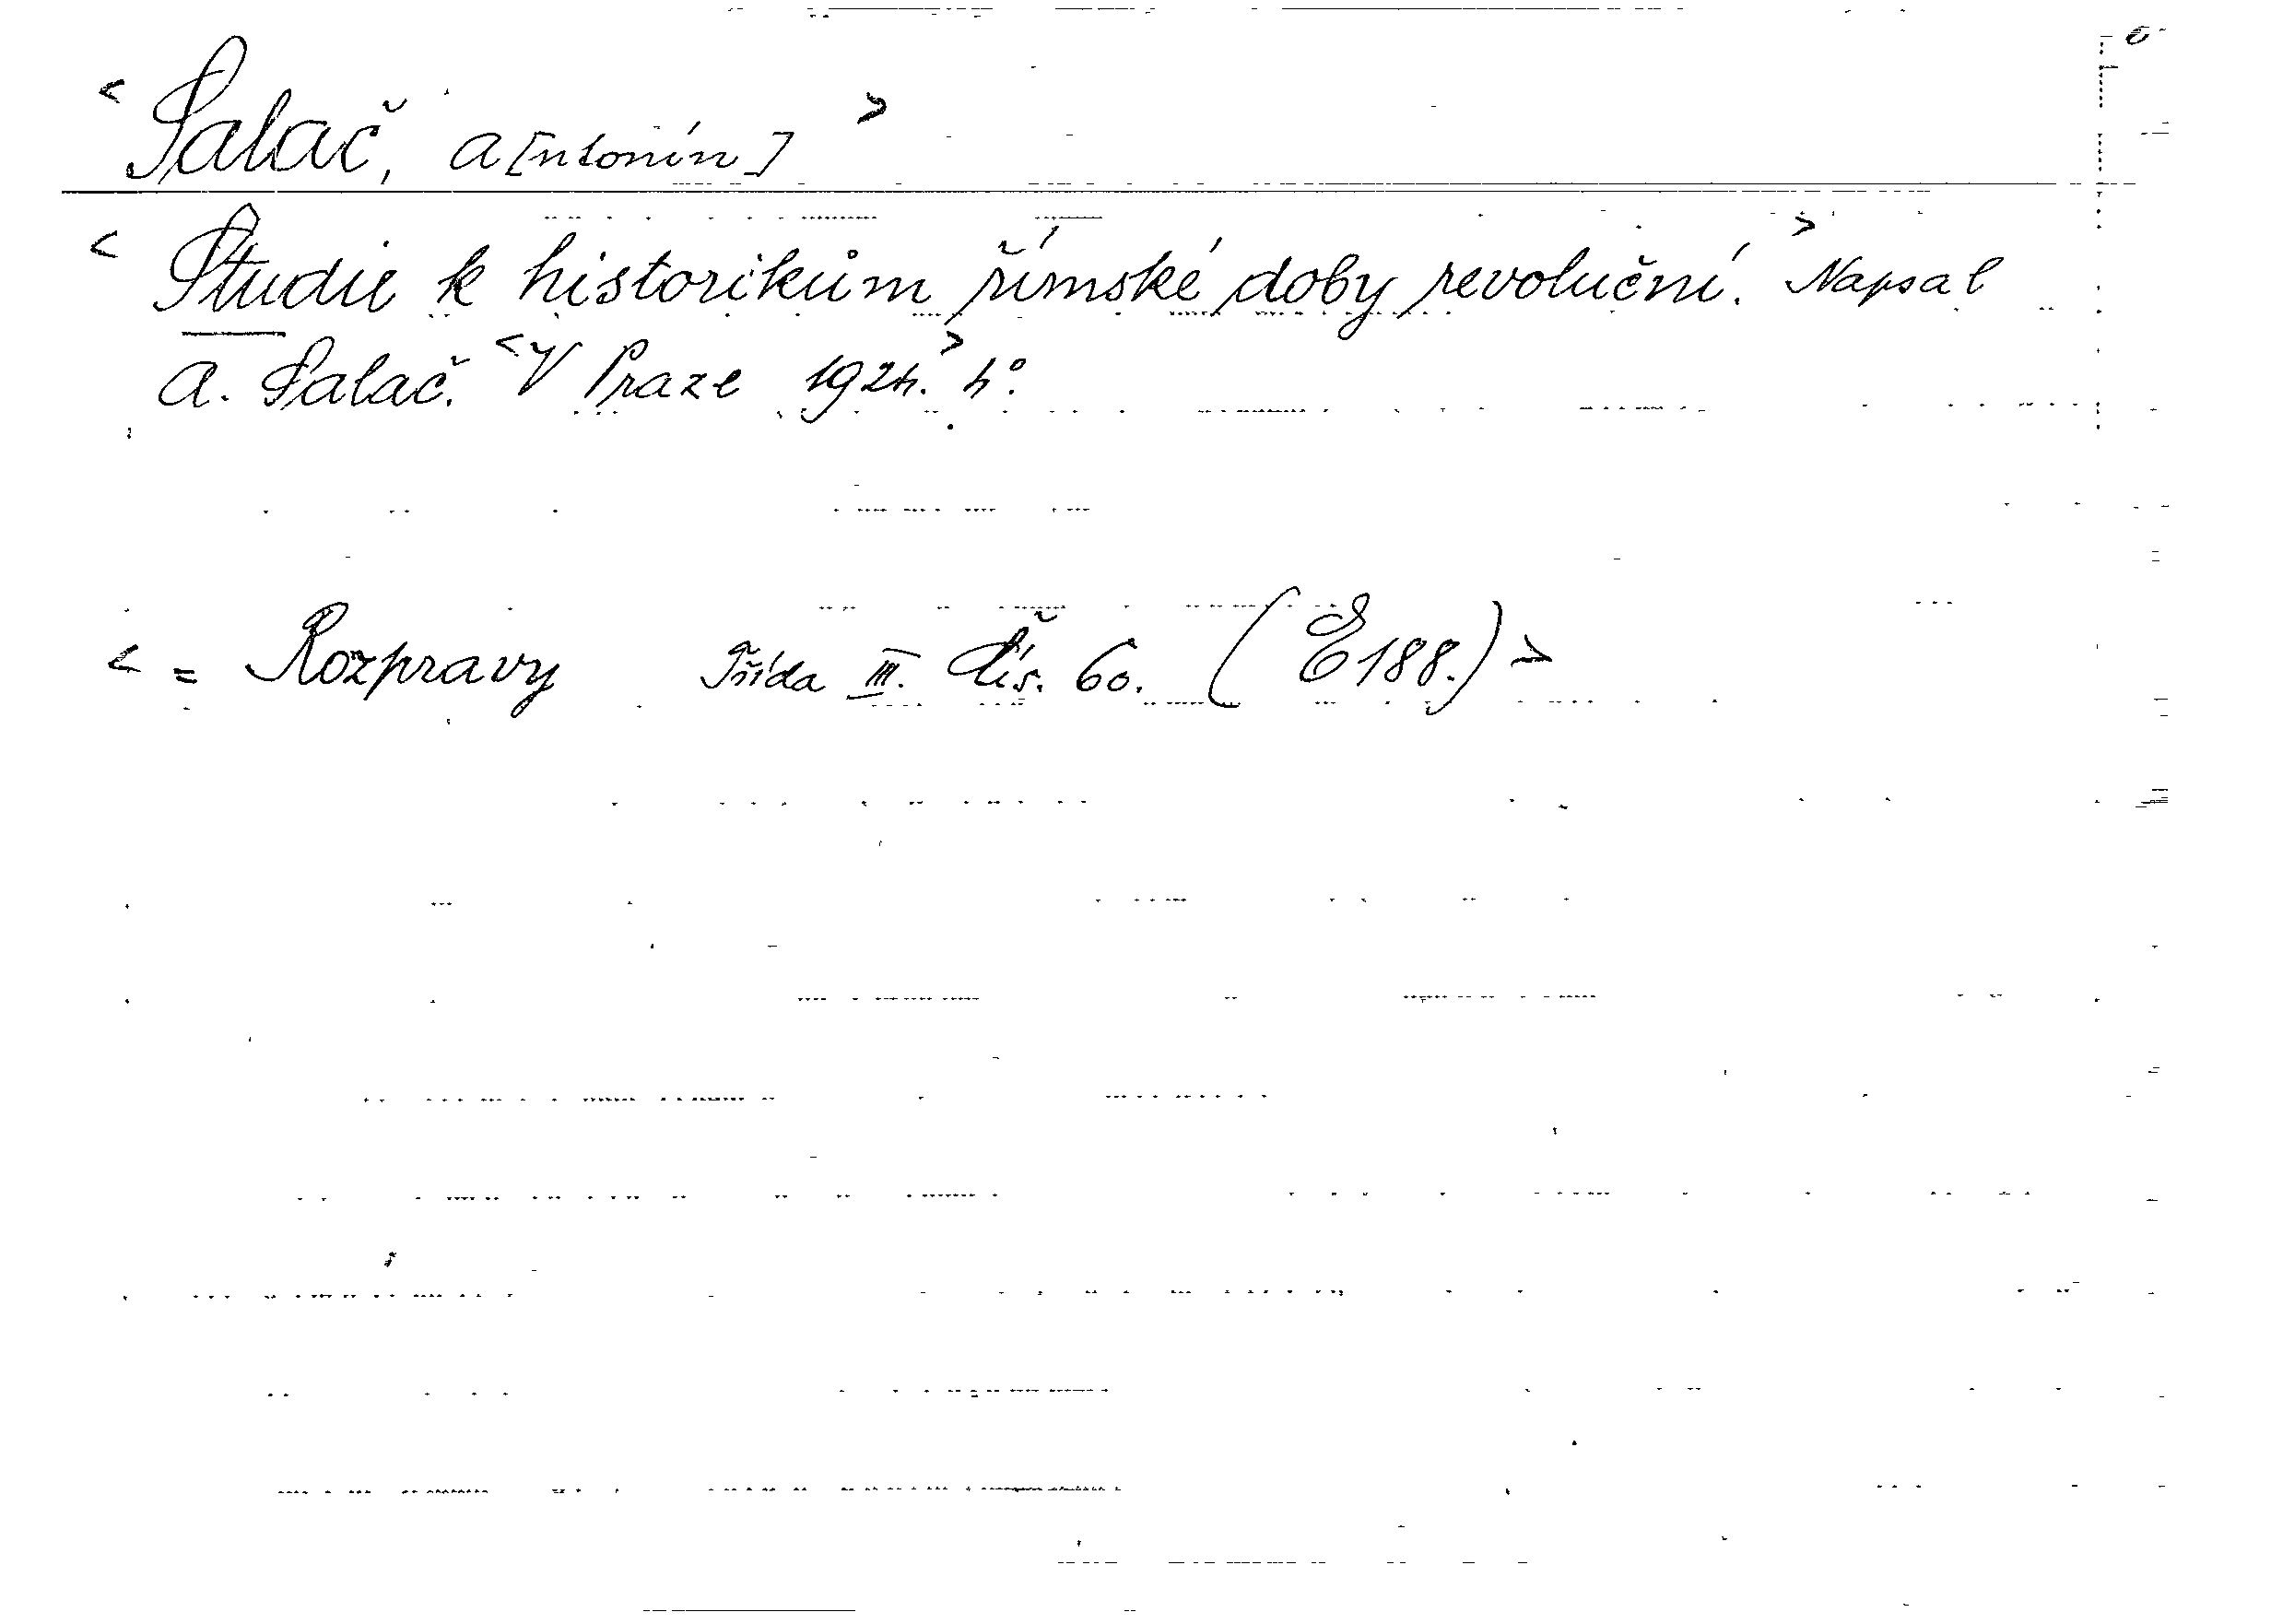 < Salač, A[ntonín] >
< Studie k historikům římské doby revoluční. > Napsal
A. Salač. < V Praze 1924. > 4°.
< = Rozpravy Třída III. Čís. 60. (E 188.) >